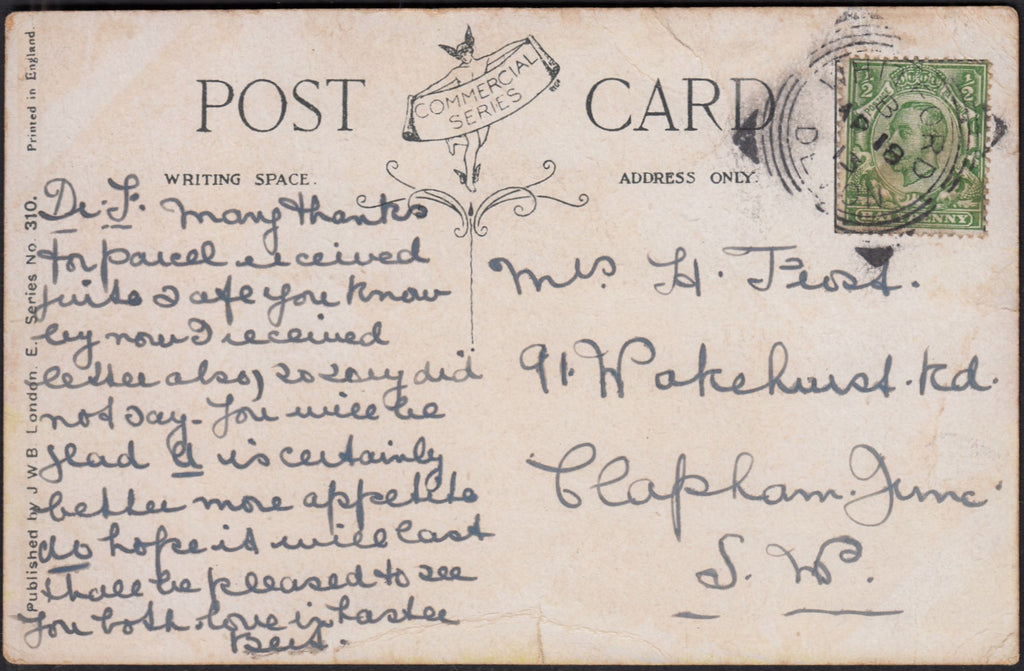 Printed in England.
Published by J W B London. E. Series No. 310.
POST CARD
COMMERCIAL
SERIES
WRITING SPACE.
ADDRESS ONLY.
½ ½
HALFPENNY
18
13
Dr. F. Many thanks
for parcel received
quite safe you know
by now I received
letter also, so sorry did
not say. You will be
glad A is certainly
better more appetite
do hope it will last
shall be pleased to see
you both. love in haste
Bert.
Mrs H. Frost.
91. Wakehurst. Rd.
Clapham. Junc.
S. W.